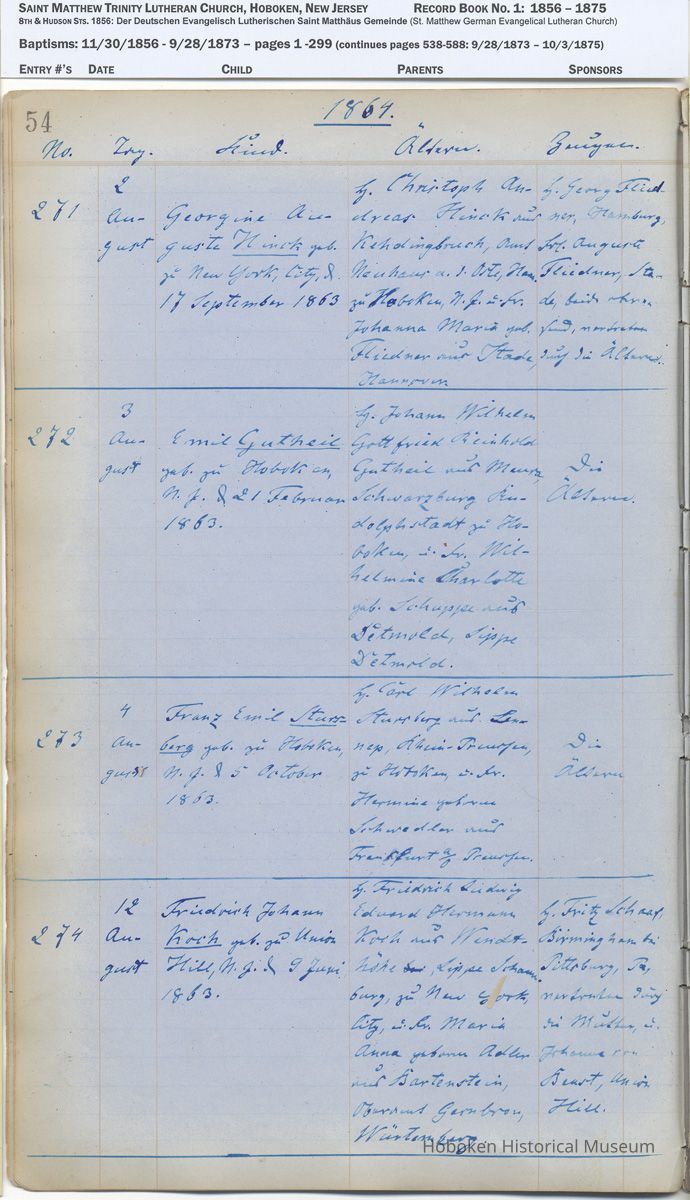 SAINT MATTHEW TRINITY LUTHERAN CHURCH, HOBOKEN, NEW JERSEY RECORD BOOK NO. 1: 1856 – 1875
8TH & HUDSON STS. 1856: Der Deutschen Evangelisch Lutherischen Saint Matthäus Gemeinde (St. Matthew German Evangelical Lutheran Church)
Baptisms: 11/30/1856 - 9/28/1873 – pages 1 -299 (continues pages 538-588: 9/28/1873 – 10/3/1875)
ENTRY #'S DATE CHILD PARENTS SPONSORS
54
1864.
No. Tag. Kind. Ältern. Zeugen.
271
2
Au-
gust
Georgine Au-
guste Hinck geb.
zu New York, City, d.
17 September 1863
H. Christoph An-
dreas Hinck aus
Kehdingbruch, Amt
Neuhaus a. d. Oste, Han.
zu Hoboken, N. J. u. Fr.
Johanna Maria geb.
Fliedner aus Stade,
Hannover
H. Georg Flied-
ner, Hamburg,
Frl. Auguste
Fliedner, Sta-
de, beide
vertreten
durch die Ältern.
272
3
Au-
gust
Emil Gutheil
geb. zu Hoboken,
N. J. d. 21 Februar
1863.
H. Johann Wilhelm
Gottfried Reinhold
Gutheil aus
Schwarzburg Ru-
dolphstadt zu Ho-
boken, u. Fr. Wil-
helmine Charlotte
geb. Schuppe aus
Detmold, Lippe
Detmold.
Die
Ältern.
273
4
Au-
gust
Franz Emil Sturs-
berg geb. zu Hoboken,
N. J. d. 5 October
1863.
H. Carl Wilhelm
Stursberg aus Len-
nep, Rhein-Preussen,
zu Hoboken, u. Fr.
Hermine geboren
Schwedler aus
Frankfurt a/ Preussen.
Die
Ältern
274
12
Au-
gust
Friedrich Johann
Koch geb. zu Union
Hill, N. J. d. 9 Juni
1863.
H. Friedrich Ludwig
Eduard Hermann
Koch aus Wendt-
höhe, Lippe Schaum-
burg, zu New York,
City, u. Fr. Maria
Anna geboren Adler
aus Bartenstein,
Oberamt Gerabron,
Würtemberg.
H. Fritz Schaaf,
Birmingham bei
Pittsburg, Pa,
vertreten durch
die Mutter, u.
Johanna von
Union
Hill.
Hoboken Historical Museum